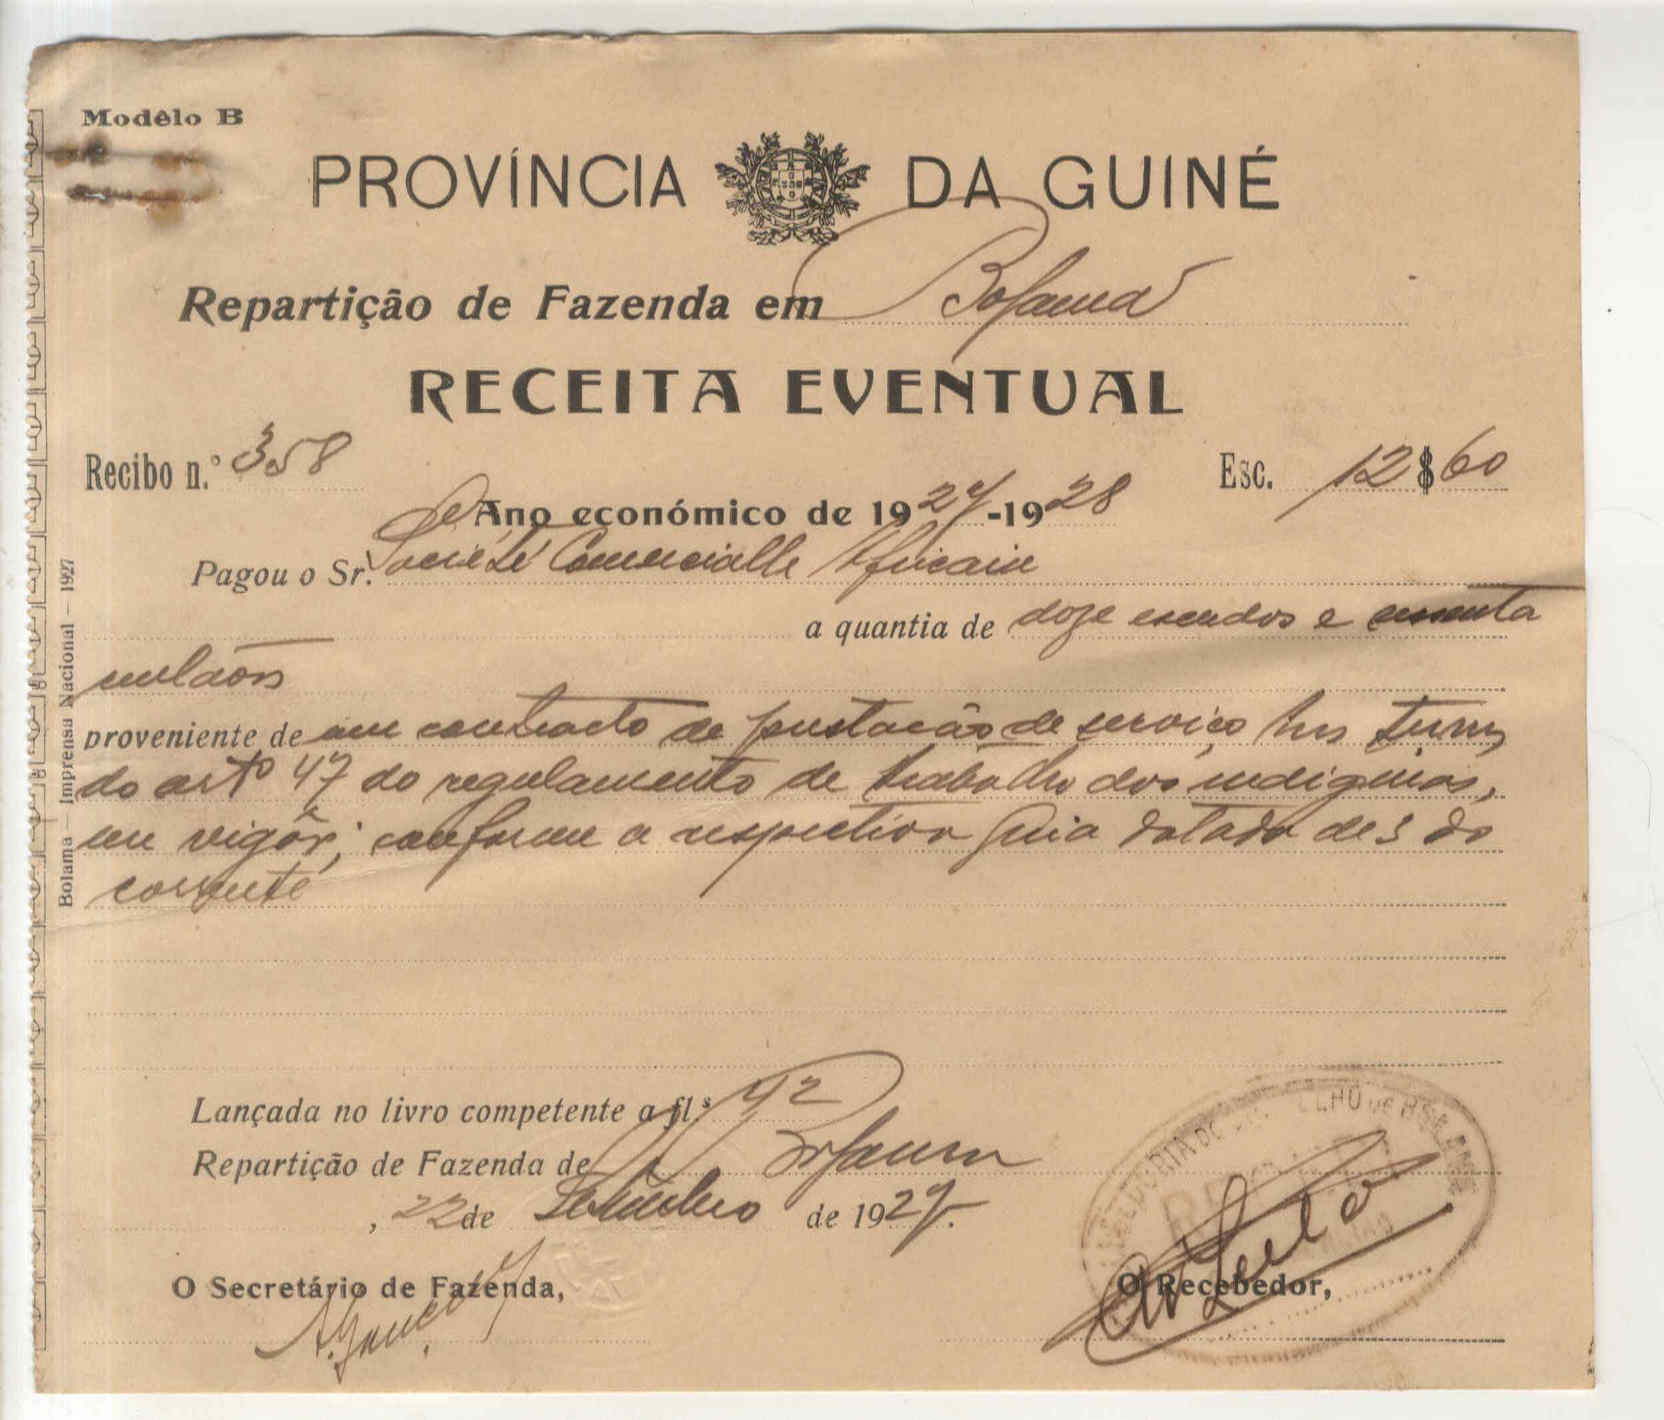 Modêlo B
PROVÍNCIA DA GUINÉ
Repartição de Fazenda em Bolama
RECEITA EVENTUAL
Recibo n.º 358
Esc. 12$60
Ano económico de 1927-1928
Pagou o Sr. Société Comercialle Africain
a quantia de doze escudos e sessenta
centavos
proveniente de um contracto de prestação de serviço nos termos
do artº 47 do regulamento de trabalho dos indigenas,
em vigôr, conforme a respectiva Guia datada de 3 do
corrente
Lançada no livro competente a fl.s 42
Repartição de Fazenda de Bolama
, 22 de Setembro de 1927.
O Secretário de Fazenda,
O Recebedor,
Bolama — Imprensa Nacional — 1927